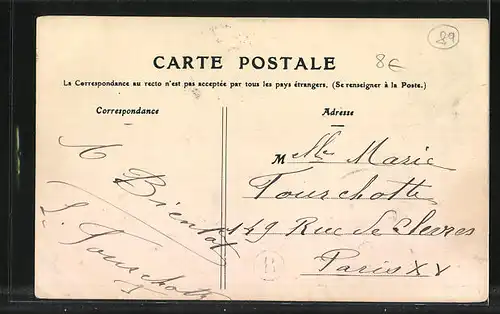 89
8€
CARTE POSTALE
La Correspondance au recto n'est pas acceptée par tous les pays étrangers. (Se renseigner à la Poste.)
Correspondance
Adresse
A Bientot
Melle Marie
149 Rue de Sevres
Paris XV